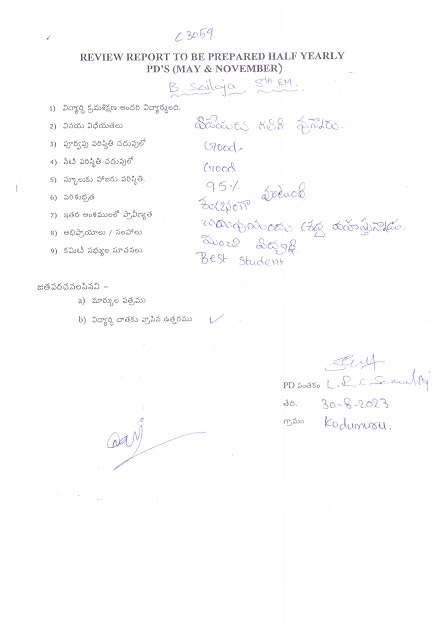 C3059
REVIEW REPORT TO BE PREPARED HALF YEARLY
PD'S (MAY & NOVEMBER)
B. Sailaja 5th EM.
1) విద్యార్థి క్రమశిక్షణ అందరి విద్యార్థులది.
2) వినయ విధేయతలు విధేయత కలిగి వున్నాడు.
3) పూర్వపు పరిస్థితి చదువులో Good.
4) నేటి పరిస్థితి చదువులో Good
5) స్కూలుకు హాజరు పరిస్థితి. 95%
6) పరిశుభ్రత శుభ్రంగా వుంటుంది
7) ఇతర అంశములలో ప్రావీణ్యత శ్రద్ధ
8) అభిప్రాయాలు / సలహాలు మంచి విద్యార్థి
9) కమిటీ సభ్యుల సూచనలు Best Student
జతపరచవలసినవి –
a) మార్కుల పత్రము
b) విద్యార్థి దాతకు వ్రాసిన ఉత్తరము ✓
PD సంతకం L.R.C.
తేది. 30-8-2023
గ్రామం Kodumuru.